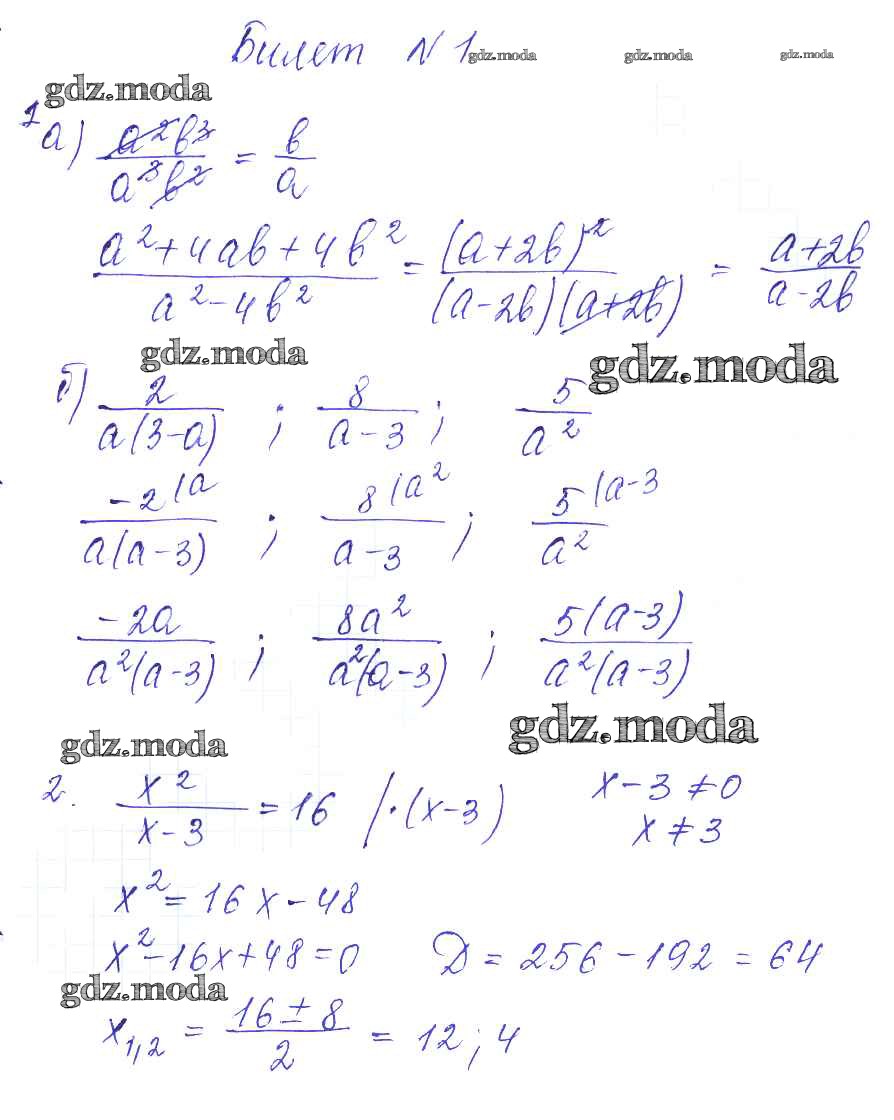 Билет N 1 gdz.moda gdz.moda gdz.moda
gdz.moda
1 а) a²b³/a³b² = b/a
(a²+4ab+4b²)/(a²-4b²) = (a+2b)²/((a-2b)(a+2b)) = (a+2b)/(a-2b)
gdz.moda gdz.moda
б) 2/(a(3-a)) ; 8/(a-3) ; 5/a²
-2 (a/(a(a-3)) ; 8 (a²/(a-3) ; 5 (a-3/a²
-2a/(a²(a-3)) ; 8a²/(a²(a-3)) ; 5(a-3)/(a²(a-3))
gdz.moda gdz.moda
2. x²/(x-3) = 16 /·(x-3) x-3≠0
x≠3
x² = 16x-48
x²-16x+48=0 D = 256-192 = 64
gdz.moda
x₁,₂ = (16±8)/2 = 12; 4